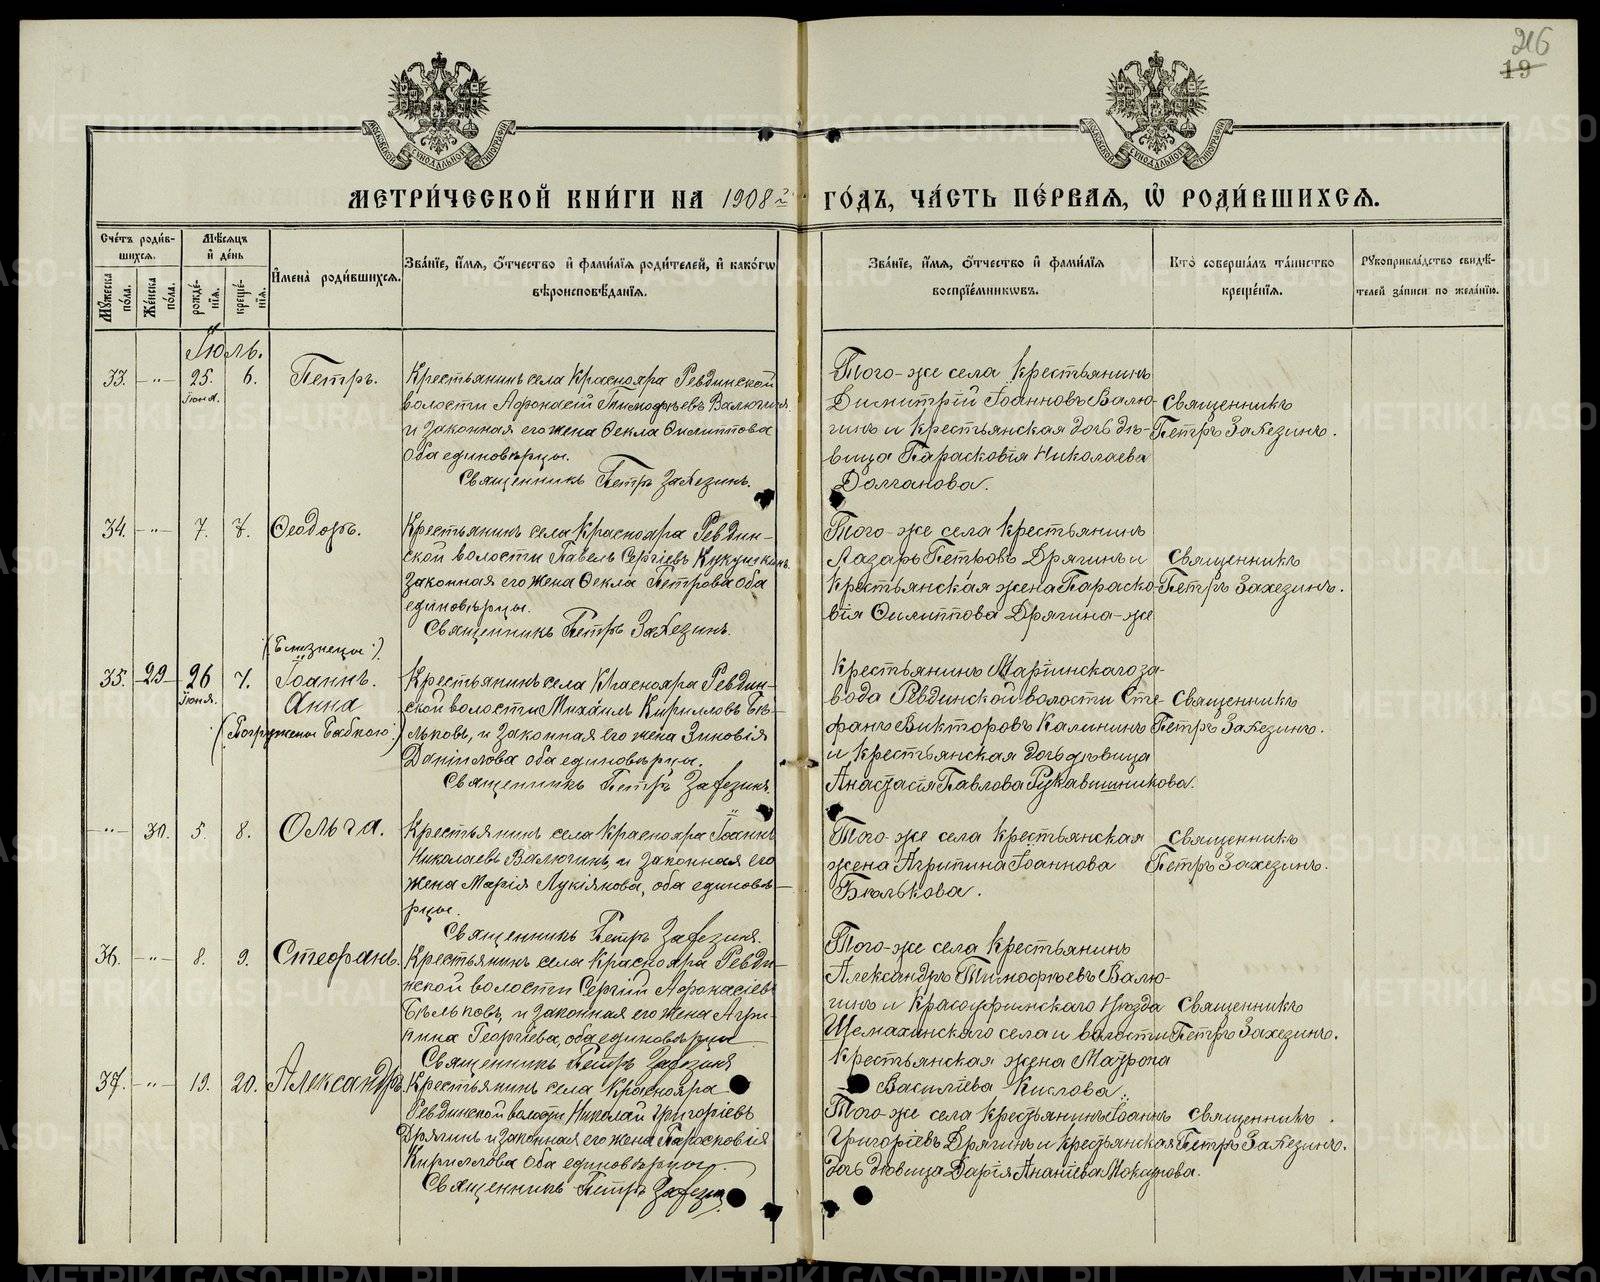 216
19
МОСКОВСКОЙ СѴНОДАЛЬНОЙ ТИПОГРАФІИ
МОСКОВСКОЙ СѴНОДАЛЬНОЙ ТИПОГРАФІИ
МЕТРИ́ЧЕСКОЙ КНИ́ГИ НА 1908 г. ГО́ДЪ, ЧА́СТЬ ПЕ́РВАѦ, Ѡ҆ РОДИ́ВШИХСѦ.
Сче́тъ роди́в-
шихсѧ.
Мѣ́сѧцъ
и҆ де́нь
Мꙋ́жеска
по́ла.
Же́нска
по́ла.
рожде́-
нїѧ.
креще́-
нїѧ.
И҆мена̀ роди́вшихсѧ.
Зва́нїе, и҆́мѧ, ѻ҆́тчество и҆ фами́лїѧ роди́телей, и҆ како́гѡ
вѣроисповѣ́данїѧ.
Зва́нїе, и҆́мѧ, ѻ҆́тчество и҆ фами́лїѧ
воспрїе́мникѡвъ.
Кто̀ соверша́лъ та́инство
креще́нїѧ.
Рꙋкоприкла́дство свидѣ́-
телей за́писи по жела́нїю.
Іюль.
33. -"- 25. Іюня. 6. Петръ.
Крестьянинъ села Краснояра Ревдинской
волости Афонасій Тимофѣевъ Валюгинъ
и Законная его жена Ѳекла Филиппова
Оба единовѣрцы.
Священникъ Петръ Захезинъ.
Того-же села Крестьянинъ
Димитрій Іоанновъ Валю-
гинъ и Крестьянская дочь дѣ-
вица Парасковія Николаева
Долганова.
Священникъ
Петръ Захезинъ.
34. -"- 7. 7. Ѳеодоръ.
Крестьянинъ села Краснояра Ревдин-
ской волости Павелъ Сергіевъ Кукушкинъ
Законная его жена Ѳекла Петрова Оба
единовѣрцы.
Священникъ Петръ Захезинъ.
Того-же села Крестьянинъ
Лазарь Петровъ Дрягинъ и
Крестьянская жена Параско-
вія Филиппова Дрягина-же
Священникъ
Петръ Захезинъ.
(:Близнецы:)
35. 29 26 Іюня. 7. Іоаннъ.
Анна
(Погружены бабкою:)
Крестьянинъ села Краснояра Ревдин-
ской волости Михаилъ Кирилловъ Бѣ-
льковъ, и Законная его жена Зиновія
Даніилова оба единовѣрцы.
Священникъ Петръ Захезинъ
Крестьянинъ Маріинскаго за-
вода Ревдинской волости Сте-
фанъ Викторовъ Калининъ
и Крестьянская дочь дѣвица
Анастасія Павлова Рукавишникова.
Священникъ
Петръ Захезинъ.
-"- 30. 5. 8. Ольга.
Крестьянинъ села Краснояра Іоаннъ
Николаевъ Валюгинъ, и Законная его
жена Марія Лукіянова, оба единовѣ-
рцы.
Священникъ Петръ Захезинъ.
Того-же села Крестьянская
жена Агрипина Іоаннова
Бѣлькова.
Священникъ
Петръ Захезинъ.
36. -"- 8. 9. Стефанъ.
Крестьянинъ села Краснояра Ревди-
нской волости Сергій Афонасіевъ
Бѣльковъ, и Законная его жена Агри-
пина Георгіева, оба единовѣрцы
Священникъ Петръ Захезинъ
Того-же села Крестьянинъ
Александръ Тимофѣевъ Валю-
гинъ и Красоуфимскаго Уѣзда
Шемахинскаго села и волости
Крестьянская жена Мавропа
Василіева Кислова.
Священникъ
Петръ Захезинъ.
37. -"- 19. 20. Александръ.
Крестьянинъ села Краснояра
Ревдинской волости Николай Григоріевъ
Дрягинъ и Законная его жена Парасковія
Кириллова Оба единовѣрцы.
Священникъ Петръ Захезинъ
Того-же села Крестьянинъ Іоаннъ
Григоріевъ Дрягинъ и Крестьянская
дочь дѣвица Дарія Ананіева Мокрова.
Священникъ
Петръ Захезинъ.
METRIKI.GASO-URAL.RU